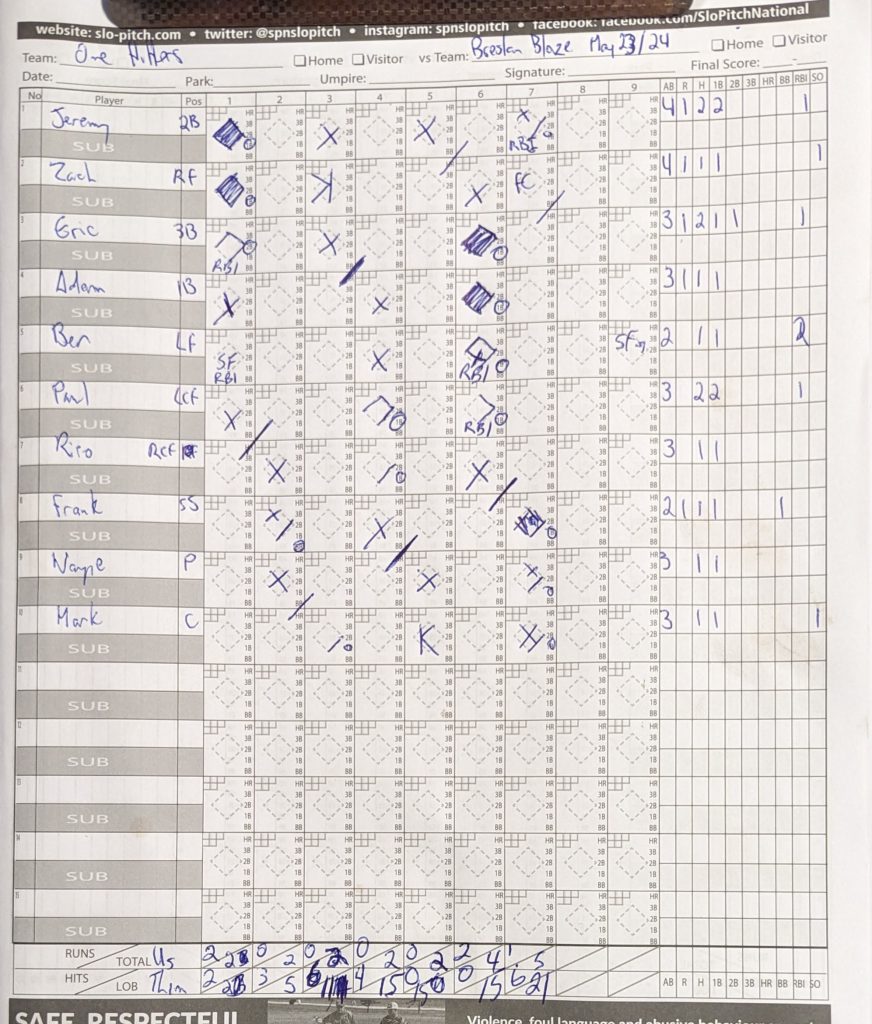 website: slo-pitch.com • twitter: @spnslopitch • instagram: spnslopitch • facebook: facebook.com/SloPitchNational
Team: One Hitters Home Visitor vs Team: Breslau Blaze May 23/24 Home Visitor
Date: Park: Umpire: Signature: Final Score:
No Player Pos 1 2 3 4 5 6 7 8 9 AB R H 1B 2B 3B HR BB RBI SO
1 Jeremy 2B RBI 4 1 2 2 1
SUB
2 Zach RF K FC 4 1 1 1 1
SUB
3 Eric 3B RBI 3 1 2 1 1 1
SUB
4 Adam 1B 3 1 1 1
SUB
5 Ben LF SF RBI RBI SF 2 1 1 2
SUB
6 Paul LCF RBI 3 2 2 1
SUB
7 Rico RCF 3 1 1
SUB
8 Frank SS 2 1 1 1 1
SUB
9 Wayne P 3 1 1
SUB
10 Mark C K 3 1 1 1
SUB
11
SUB
12
SUB
13
SUB
14
SUB
15
SUB
RUNS TOTAL Us 2 0 2 0 2 0 2 0 2 2 4 1 5
HITS LOB Them 2 3 5 6 11 4 15 0 15 0 15 6 21 AB R H 1B 2B 3B HR BB RBI SO
SAFE, RESPECTFUL
Violence, foul language and abusive behaviour